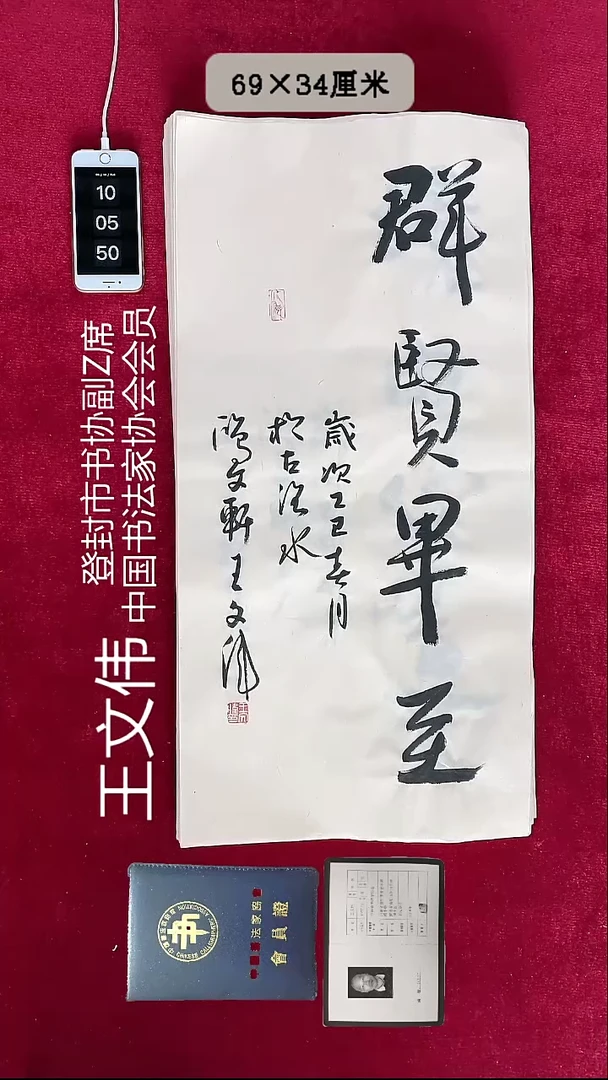 69×34厘米
10
05
50
群賢畢至
歲次乙巳春月
於古潁水
鴻文軒王文偉
登封市书协副Z席
中国书法家协会会员
王文伟
中國書法家協會
會員證